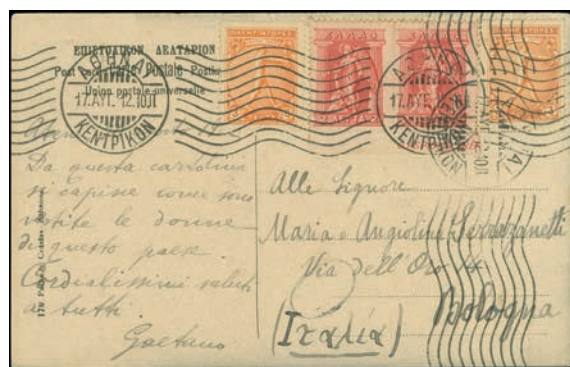 ΕΠΙΣΤΟΛΙΚΟΝ ΔΕΛΤΑΡΙΟΝ
Postale
Union postale universelle
ΑΘΗΝΑΙ
17.ΑΥΓ. 12.10.Π
ΚΕΝΤΡΙΚΟΝ
ΕΛΛΑΣ
ΕΛΛΑΣ
ΑΘΗΝΑΙ
17.ΑΥΓ.
ΚΕΝΤΡΙΚΟΝ
Da questa cartolina
si capisce come sono
vestite le donne
di questo paese.
Cordialissimi saluti
a tutti.
Gaetano
Alle Signore
Maria e Angiolina Serrazanetti
Via dell'Oro 14
Bologna
(Italia)